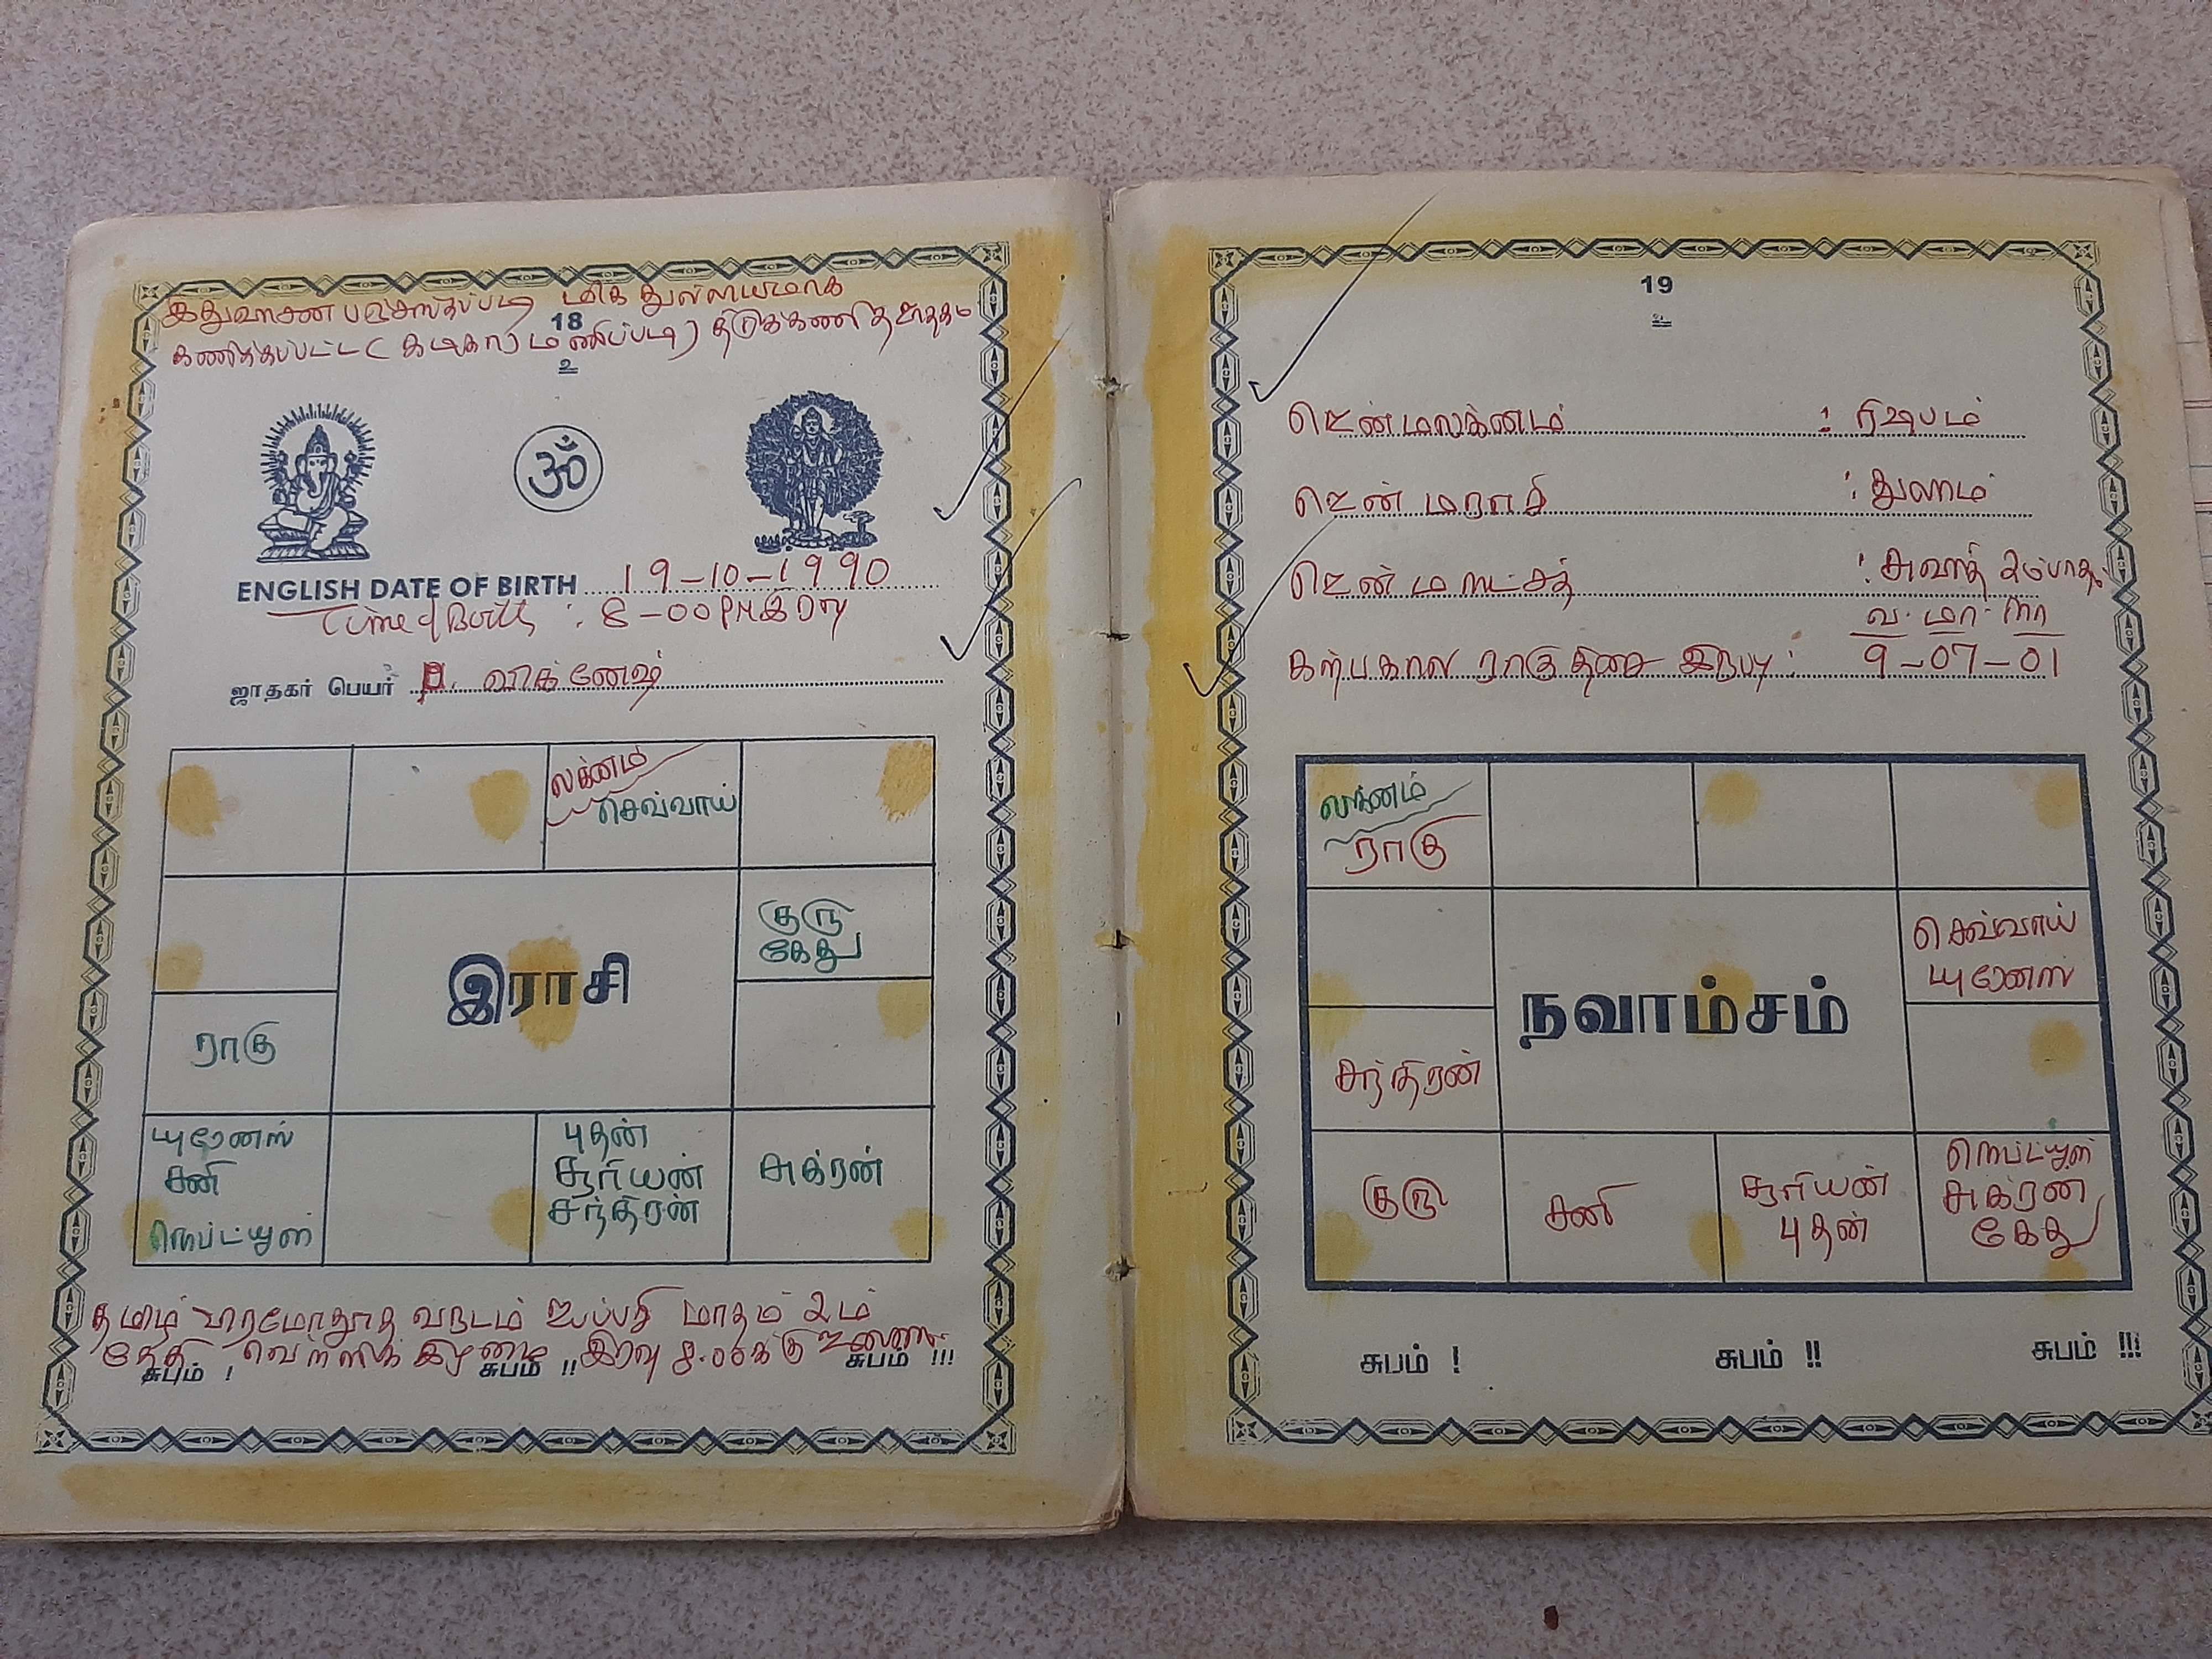 மிக துல்லியமாக
18
கணிக்கப்பட்ட திருக்கணித ஜாதகம்
உ
ENGLISH DATE OF BIRTH 19-10-1990
Time of Birth : 8-00 PM இரவு
ஜாதகர் பெயர் P. விக்னேஷ்
லக்னம்
செவ்வாய்
குரு
கேது
இராசி
ராகு
யுரேனஸ்
சனி
நெப்ட்யூன்
புதன்
சூரியன்
சந்திரன்
சுக்ரன்
தமிழ் வருடம் ஐப்பசி மாதம் 2ம்
தேதி வெள்ளிக் கிழமை இரவு 8.00க்கு
சுபம் ! சுபம் !! சுபம் !!!
19
உ
ஜென்மலக்னம் : ரிஷபம்
ஜென்மராசி : துலாம்
ஜென்ம நட்சத் : சுவாதி 2ம்பாதம்
வ. மா. நா
கர்பகால ராகு திசை இருப்பு : 9-07-01
லக்னம்
ராகு
செவ்வாய்
யுரேனஸ்
நவாம்சம்
சந்திரன்
குரு
சனி
சூரியன்
புதன்
நெப்ட்யூன்
சுக்ரன்
கேது
சுபம் ! சுபம் !! சுபம் !!!